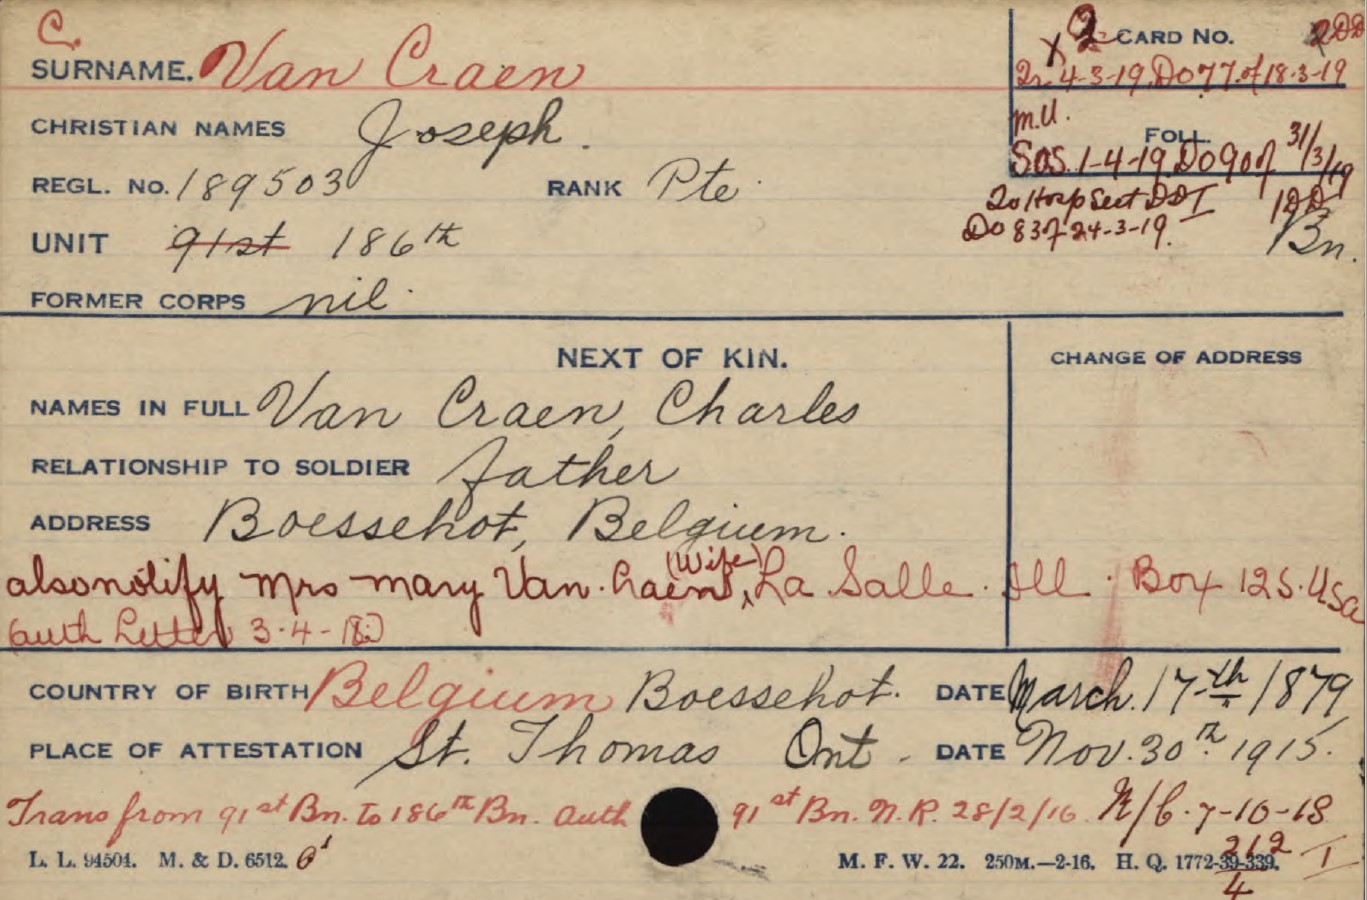 C.
SURNAME. Van Craen
CHRISTIAN NAMES Joseph.
REGL. No. 189503 RANK Pte
UNIT 91st 186th Bn.
FORMER CORPS nil.
2 CARD No.
4-3-19. Do 77 of 18-3-19
M.U.
FOLL.
SOS. 1-4-19. Do 90 of 31/3/19
To Hosp Sect DD I
Do 83 of 24-3-19.
NEXT OF KIN.
CHANGE OF ADDRESS
NAMES IN FULL Van Craen, Charles
RELATIONSHIP TO SOLDIER father
ADDRESS Boessehot, Belgium.
also notify Mrs Mary Van Craen (Wife), La Salle. Ill. Box 125. USA
(auth Letter 3-4-18.)
COUNTRY OF BIRTH Belgium Boessehot. DATE March. 17th 1879
PLACE OF ATTESTATION St. Thomas Ont. DATE Nov. 30th 1915.
Trans from 91st Bn. to 186th Bn. auth 91st Bn. N.R. 28/2/16 N/C. 7-10-18
L. L. 94504. M. & D. 6512. M. F. W. 22. 250M.—2-16. H. Q. 1772-39-339.
212
4